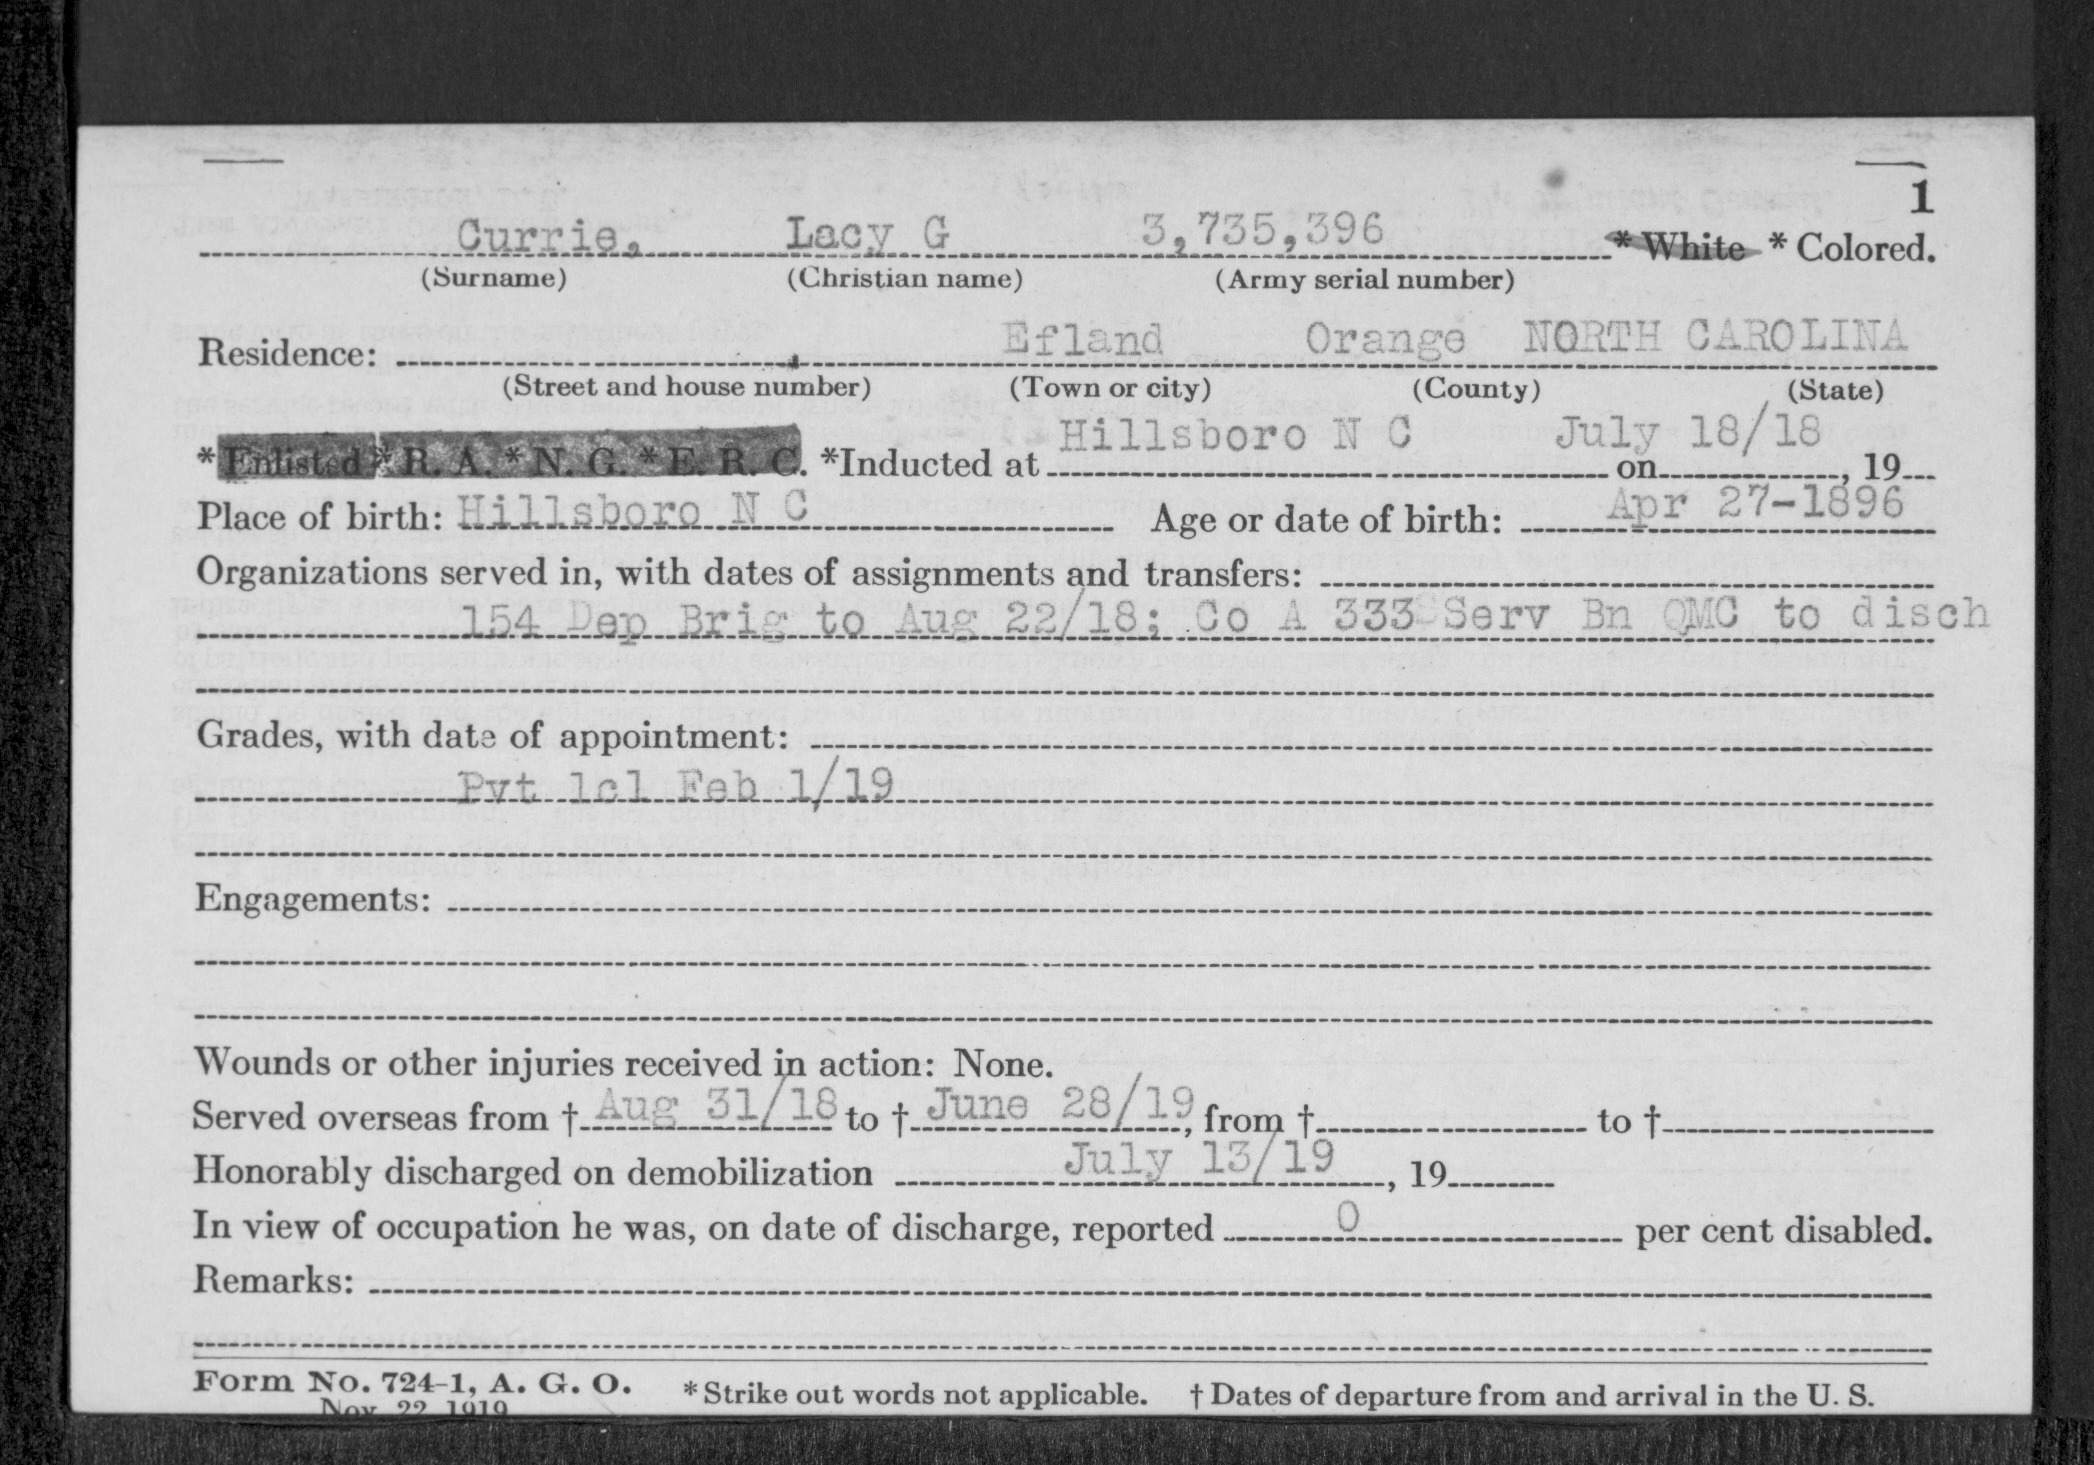 1
Currie, Lacy G 3,735,396 * White * Colored.
(Surname) (Christian name) (Army serial number)
Residence: Efland Orange NORTH CAROLINA
(Street and house number) (Town or city) (County) (State)
* Enlisted * R. A. * N. G. * E. R. C. *Inducted at Hillsboro N C on July 18/18, 19
Place of birth: Hillsboro N C Age or date of birth: Apr 27-1896
Organizations served in, with dates of assignments and transfers:
154 Dep Brig to Aug 22/18; Co A 333 Serv Bn QMC to disch
Grades, with date of appointment:
Pvt 1cl Feb 1/19
Engagements:
Wounds or other injuries received in action: None.
Served overseas from † Aug 31/18 to † June 28/19, from † to †
Honorably discharged on demobilization July 13/19, 19
In view of occupation he was, on date of discharge, reported 0 per cent disabled.
Remarks:
Form No. 724-1, A. G. O. * Strike out words not applicable. † Dates of departure from and arrival in the U. S.
Nov. 22, 1919